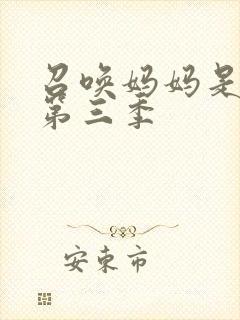 召唤妈妈是
第三季
安东市